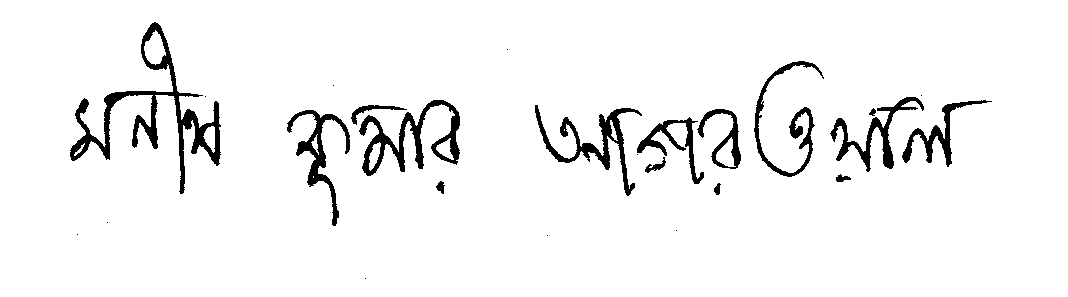 মনীশ কুমার আগরওয়াল